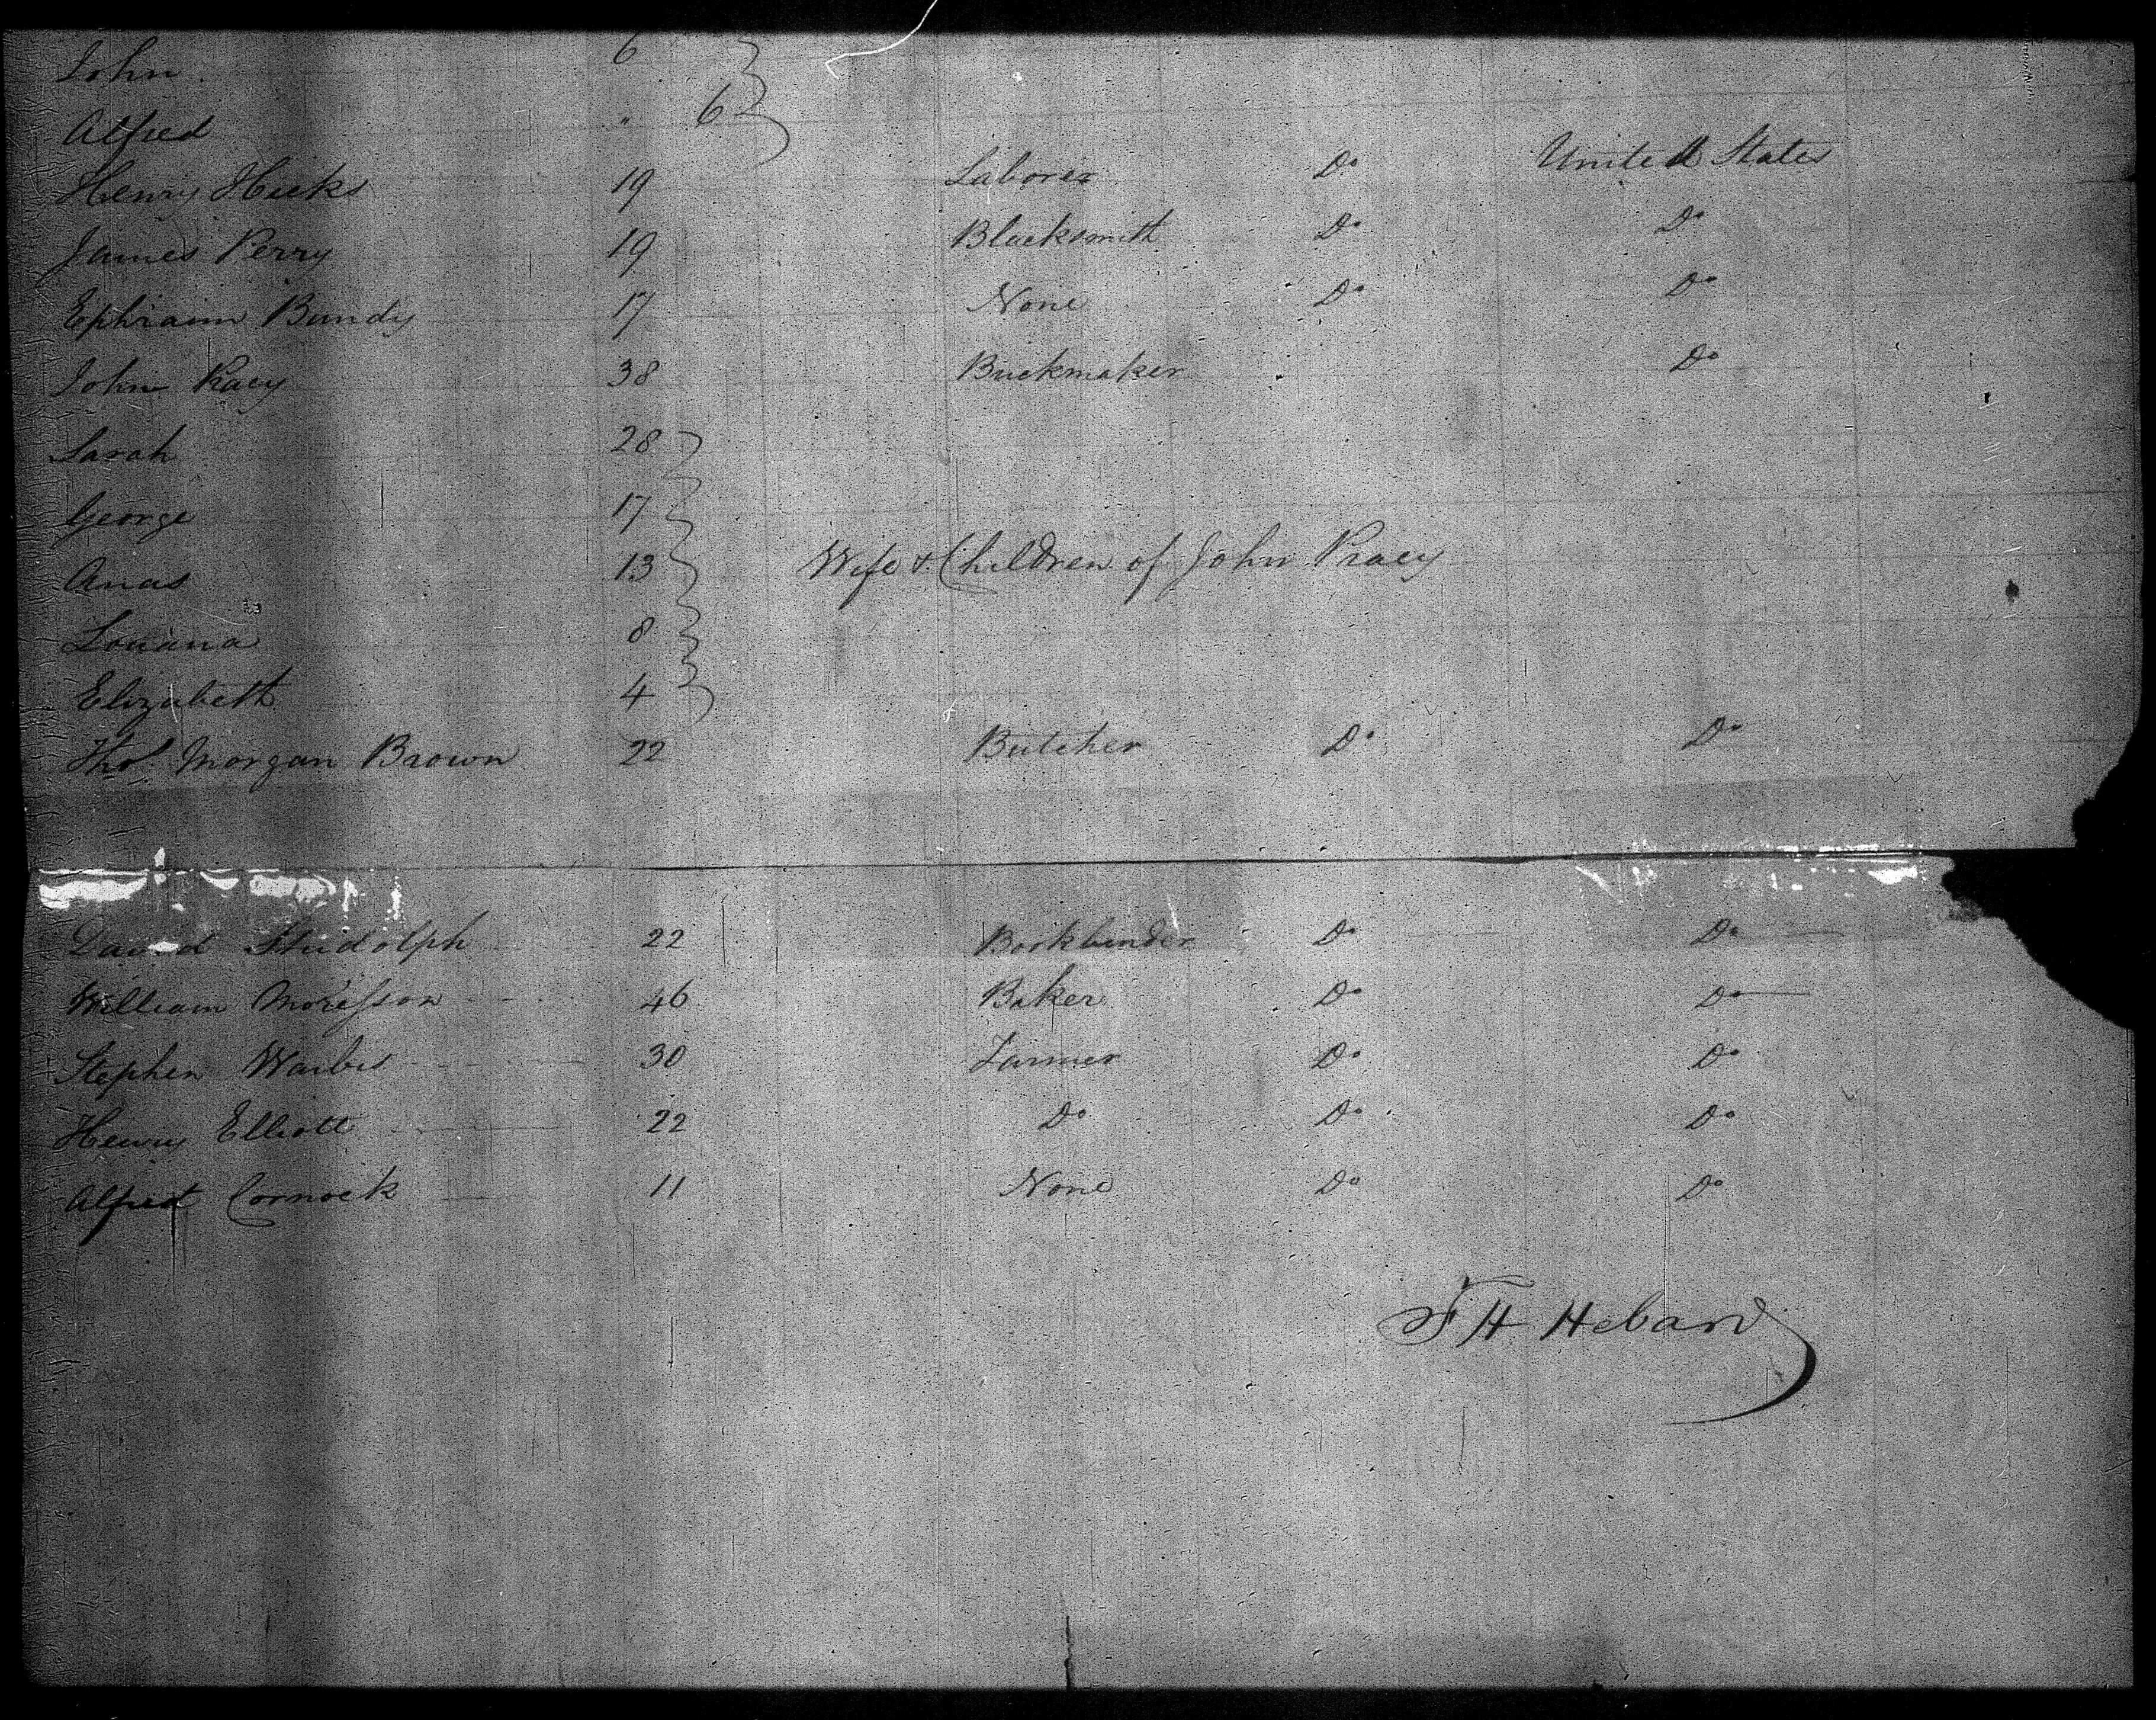 John 6
Alfred " 6
Henry Hicks 19 Laborer Do United States
James Perry 19 Blacksmith Do Do
Ephraim Bundy 17 None Do Do
John Pracy 38 Brickmaker Do
Sarah 28
George 17
Anas 13 Wife & Children of John Pracy
Louiana 8
Elizabeth 4
Thos Morgan Brown 22 Butcher Do Do
David Studolph 22 Bookbinder Do Do
William Morisson 46 Baker Do Do
Stephen 30 Farmer Do Do
Henry Elliott 22 Do Do Do
Alfred Cornock 11 None Do Do
F H Hebard